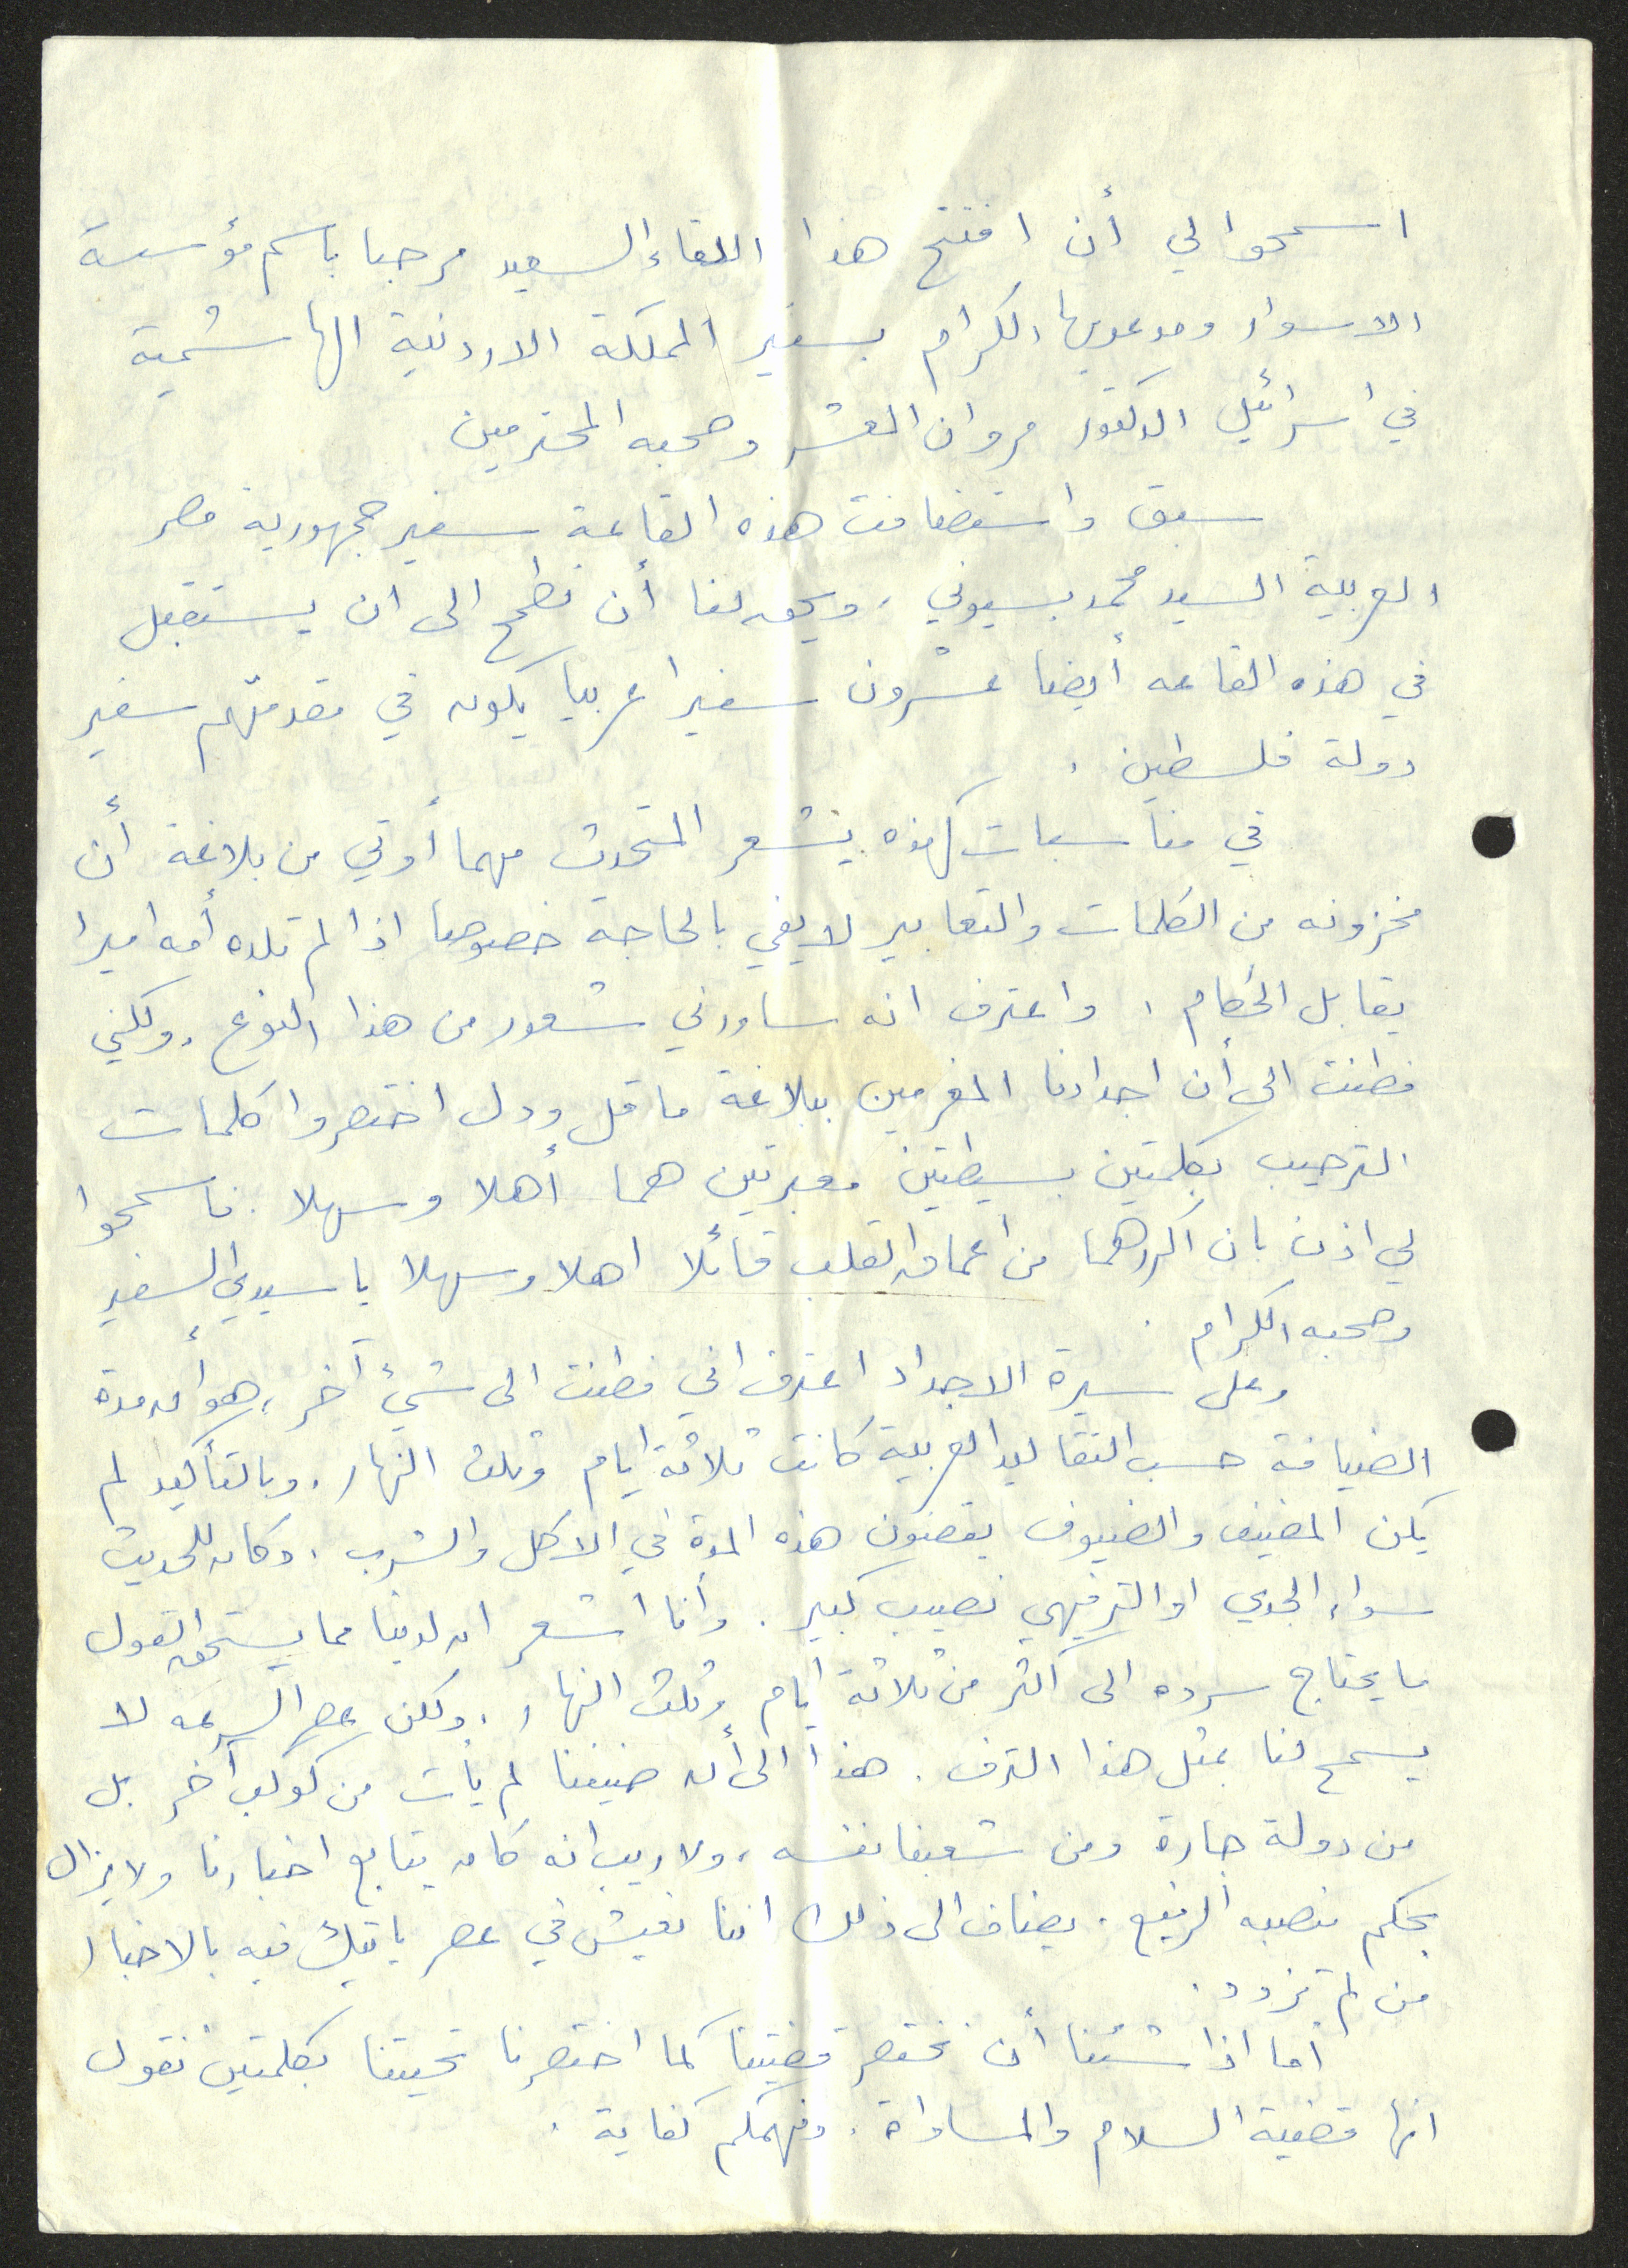 اسمحوا لي أن افتتح هذا اللقاء السعيد مرحبا باسم مؤسسة
الاسوار ومدعويها الكرام بسفير المملكة الاردنية الهاشمية
في اسرائيل الدكتور مروان المعشر وصحبه المحترمين
سبق واستضافت هذه القاعة سفير جمهورية مصر
العربية السيد محمد بسيوني، ويحق لنا أن نطمح الى ان يستقبل
في هذه القاعه أيضا عشرون سفيرا عربيا يكون في مقدمتهم سفير
دولة فلسطين.
في مناسبات كهذه يشعر المتحدث مهما أوتي من بلاغة أن
مخزونه من الكلمات والتعابير لا يفي بالحاجة خصوصا اذا لم تلده أمه اميرا
يقابل الحكام. واعترف انه ساورني شعور من هذا النوع. ولكني
فطنت الى أن اجدادنا المغرمين ببلاغة ما قل ودل اختصروا كلمات
الترحيب بكلمتين بسيطتين معبرتين هما أهلا وسهلا. فاسمحوا
لي اذن بان اكررهما من اعماق القلب قائلا اهلا وسهلا يا سيدي السفير
وصحبه الكرام.
وعلى سيرة الاجداد اعترف اني فطنت الى شيء آخر، هو أن مدة
الضيافة حسب التقاليد العربية كانت ثلاثة ايام وثلث النهار. وبالتأكيد لم
يكن المضيف والضيوف يقضون هذه المدة في الاكل والشرب. وكان للحديث
سواء الجدي او الترفيهي نصيب كبير. وأنا اشعر ان لدينا مما يستحق القول
ما يحتاج سرده الى أكثر من ثلاثة أيام وثلث النهار. ولكن عصر السرعه لا
يسمح لنا بمثل هذا الترف. هذا الى أن ضيفنا لم يأت من كوكب آخر بل
من دولة جارة ومن شعبنا نفسه، ولا ريب انه كان يتابع اخبارنا ولا يزال
بحكم منصبه الرفيع. يضاف الى ذلك اننا نعيش في عصر يأتيك فيه بالاخبار
من لم تزود.
أما اذا شئنا أن نختصر قضيتنا كما اختصرنا تحيتنا بكلمتين نقول
انها قضية السلام والمساواة. وفهمكم كفاية.